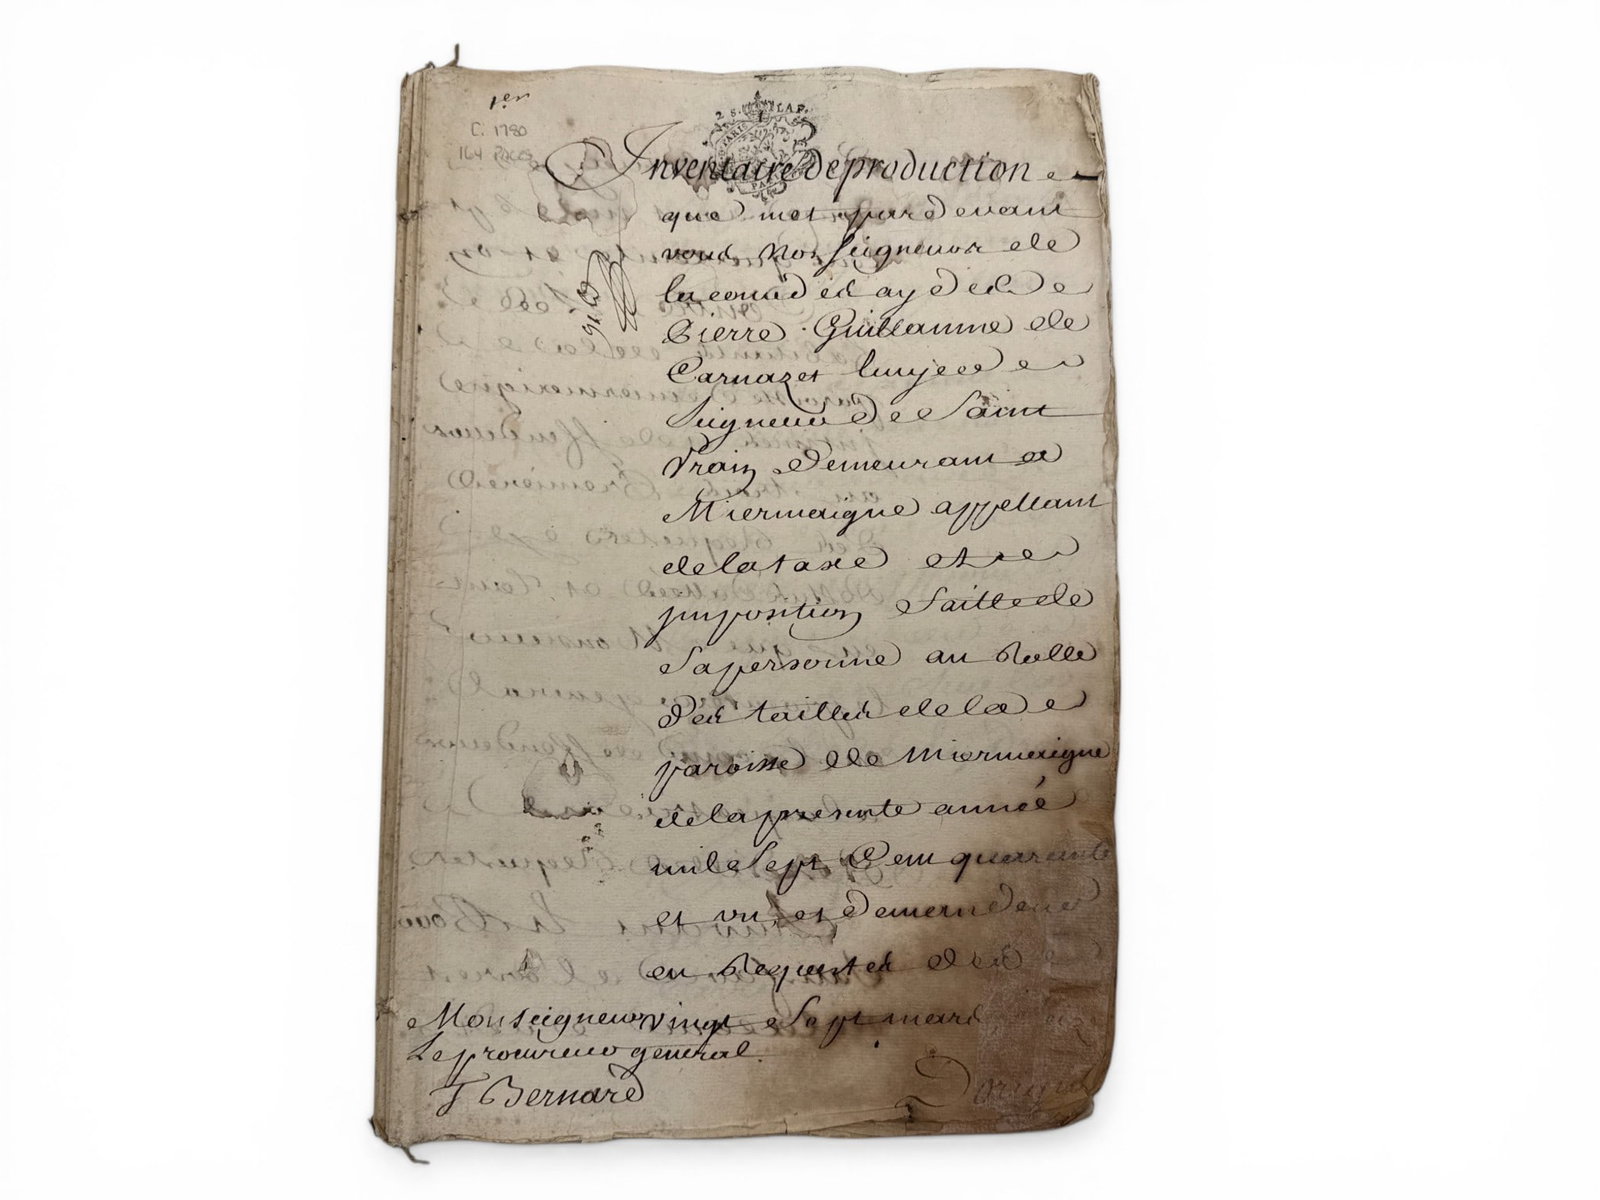 1er
C. 1780
164 PAGES
Inventaire de production
que met pardevant
vous Nosseigneurs de
la cour des aydes
Pierre Guillaume de
Carnazet Ecuyer
Seigneur de Saint
Vrain demeurant a
Miermaigne appellant
de la taxe et
imposition faitte de
sa personne au Rolle
des tailles de la
paroisse de Miermaigne
de la presente année
mil Sept Cent quarante
et un, et demandeur
en Requeste
vingt Sept mars
Monseigneur
Le procureur general
J Bernard